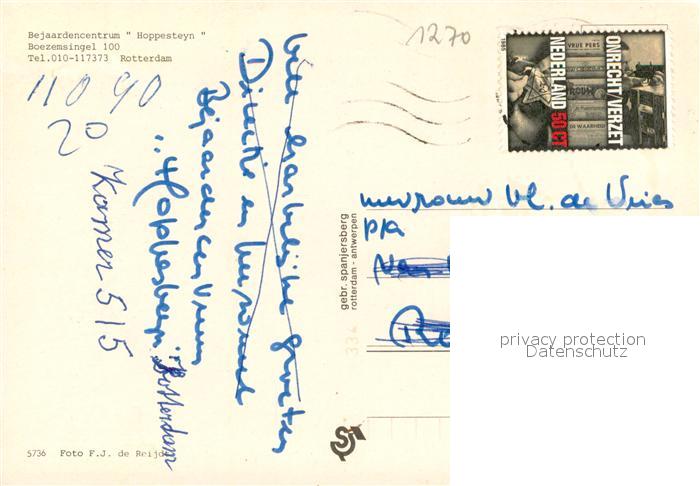 Bejaardencentrum " Hoppesteyn "
Boezemsingel 100
Tel.010-117373 Rotterdam
11 0 90
20
Kamer 515
vele hartelijke groeten
Directie en
Bejaardencentrum
"Hoppesteyn"
Rotterdam
5736 Foto F.J. de Reijde
gebr. spanjersberg
rotterdam - antwerpen
334
1270
VRIJE PERS
TROUW
DE WAARHEID
ONRECHT/VERZET
NEDERLAND 50 CT
1985
mevrouw de Vries
p/a
privacy protection
Datenschutz